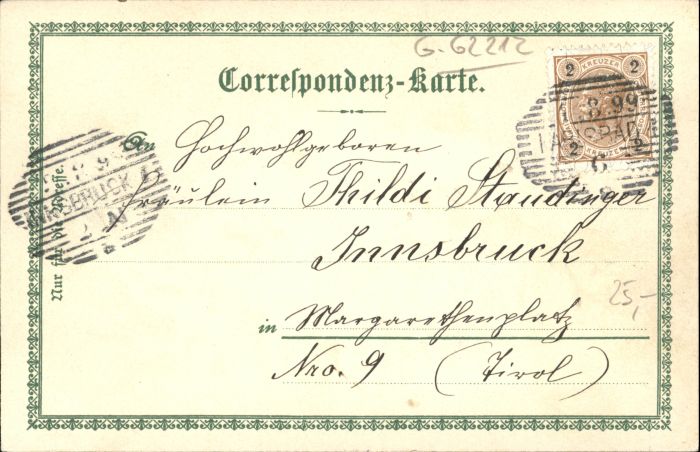 G. 62212
Correspondenz-Karte.
2 KREUZER 2
8 99
6
2 KREUZER 2
An Hochwohlgeboren
Fräulein Thildi Staudinger
Innsbruck
in Margarethenplatz
Nro. 9 (Tirol)
8 99
INNSBRUCK
Nur für die Adresse.
25,-